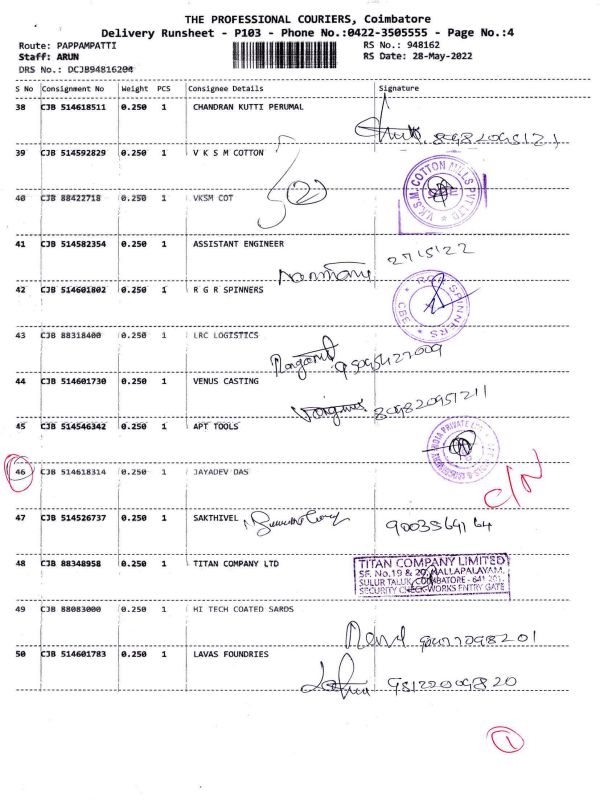 THE PROFESSIONAL COURIERS, Coimbatore
Delivery Runsheet - P103 - Phone No.:0422-3505555 - Page No.:4
Route: PAPPAMPATTI RS No.: 948162
Staff: ARUN RS Date: 28-May-2022
DRS No.: DCJB94816204
S No Consignment No Weight PCS Consignee Details Signature
38 CJB 514618511 0.250 1 CHANDRAN KUTTI PERUMAL
39 CJB 514592829 0.250 1 V K S M COTTON
V.K.S.M. COTTON MILLS PVT LTD CBE
40 CJB 88422718 0.250 1 VKSM COT
41 CJB 514582354 0.250 1 ASSISTANT ENGINEER 27/5/22
42 CJB 514601802 0.250 1 R G R SPINNERS
RGR SPINNERS CBE
43 CJB 88318400 0.250 1 LRC LOGISTICS
44 CJB 514601730 0.250 1 VENUS CASTING
45 CJB 514546342 0.250 1 APT TOOLS
46 CJB 514618314 0.250 1 JAYADEV DAS C/N
47 CJB 514526737 0.250 1 SAKTHIVEL
48 CJB 88348958 0.250 1 TITAN COMPANY LTD
TITAN COMPANY LIMITED
SF. No.19 & 20, MALLAPALAYAM,
SULUR TALUK, COIMBATORE - 641 201.
SECURITY CHECK-WORKS ENTRY GATE
49 CJB 88083000 0.250 1 HI TECH COATED SARDS
50 CJB 514601783 0.250 1 LAVAS FOUNDRIES
1